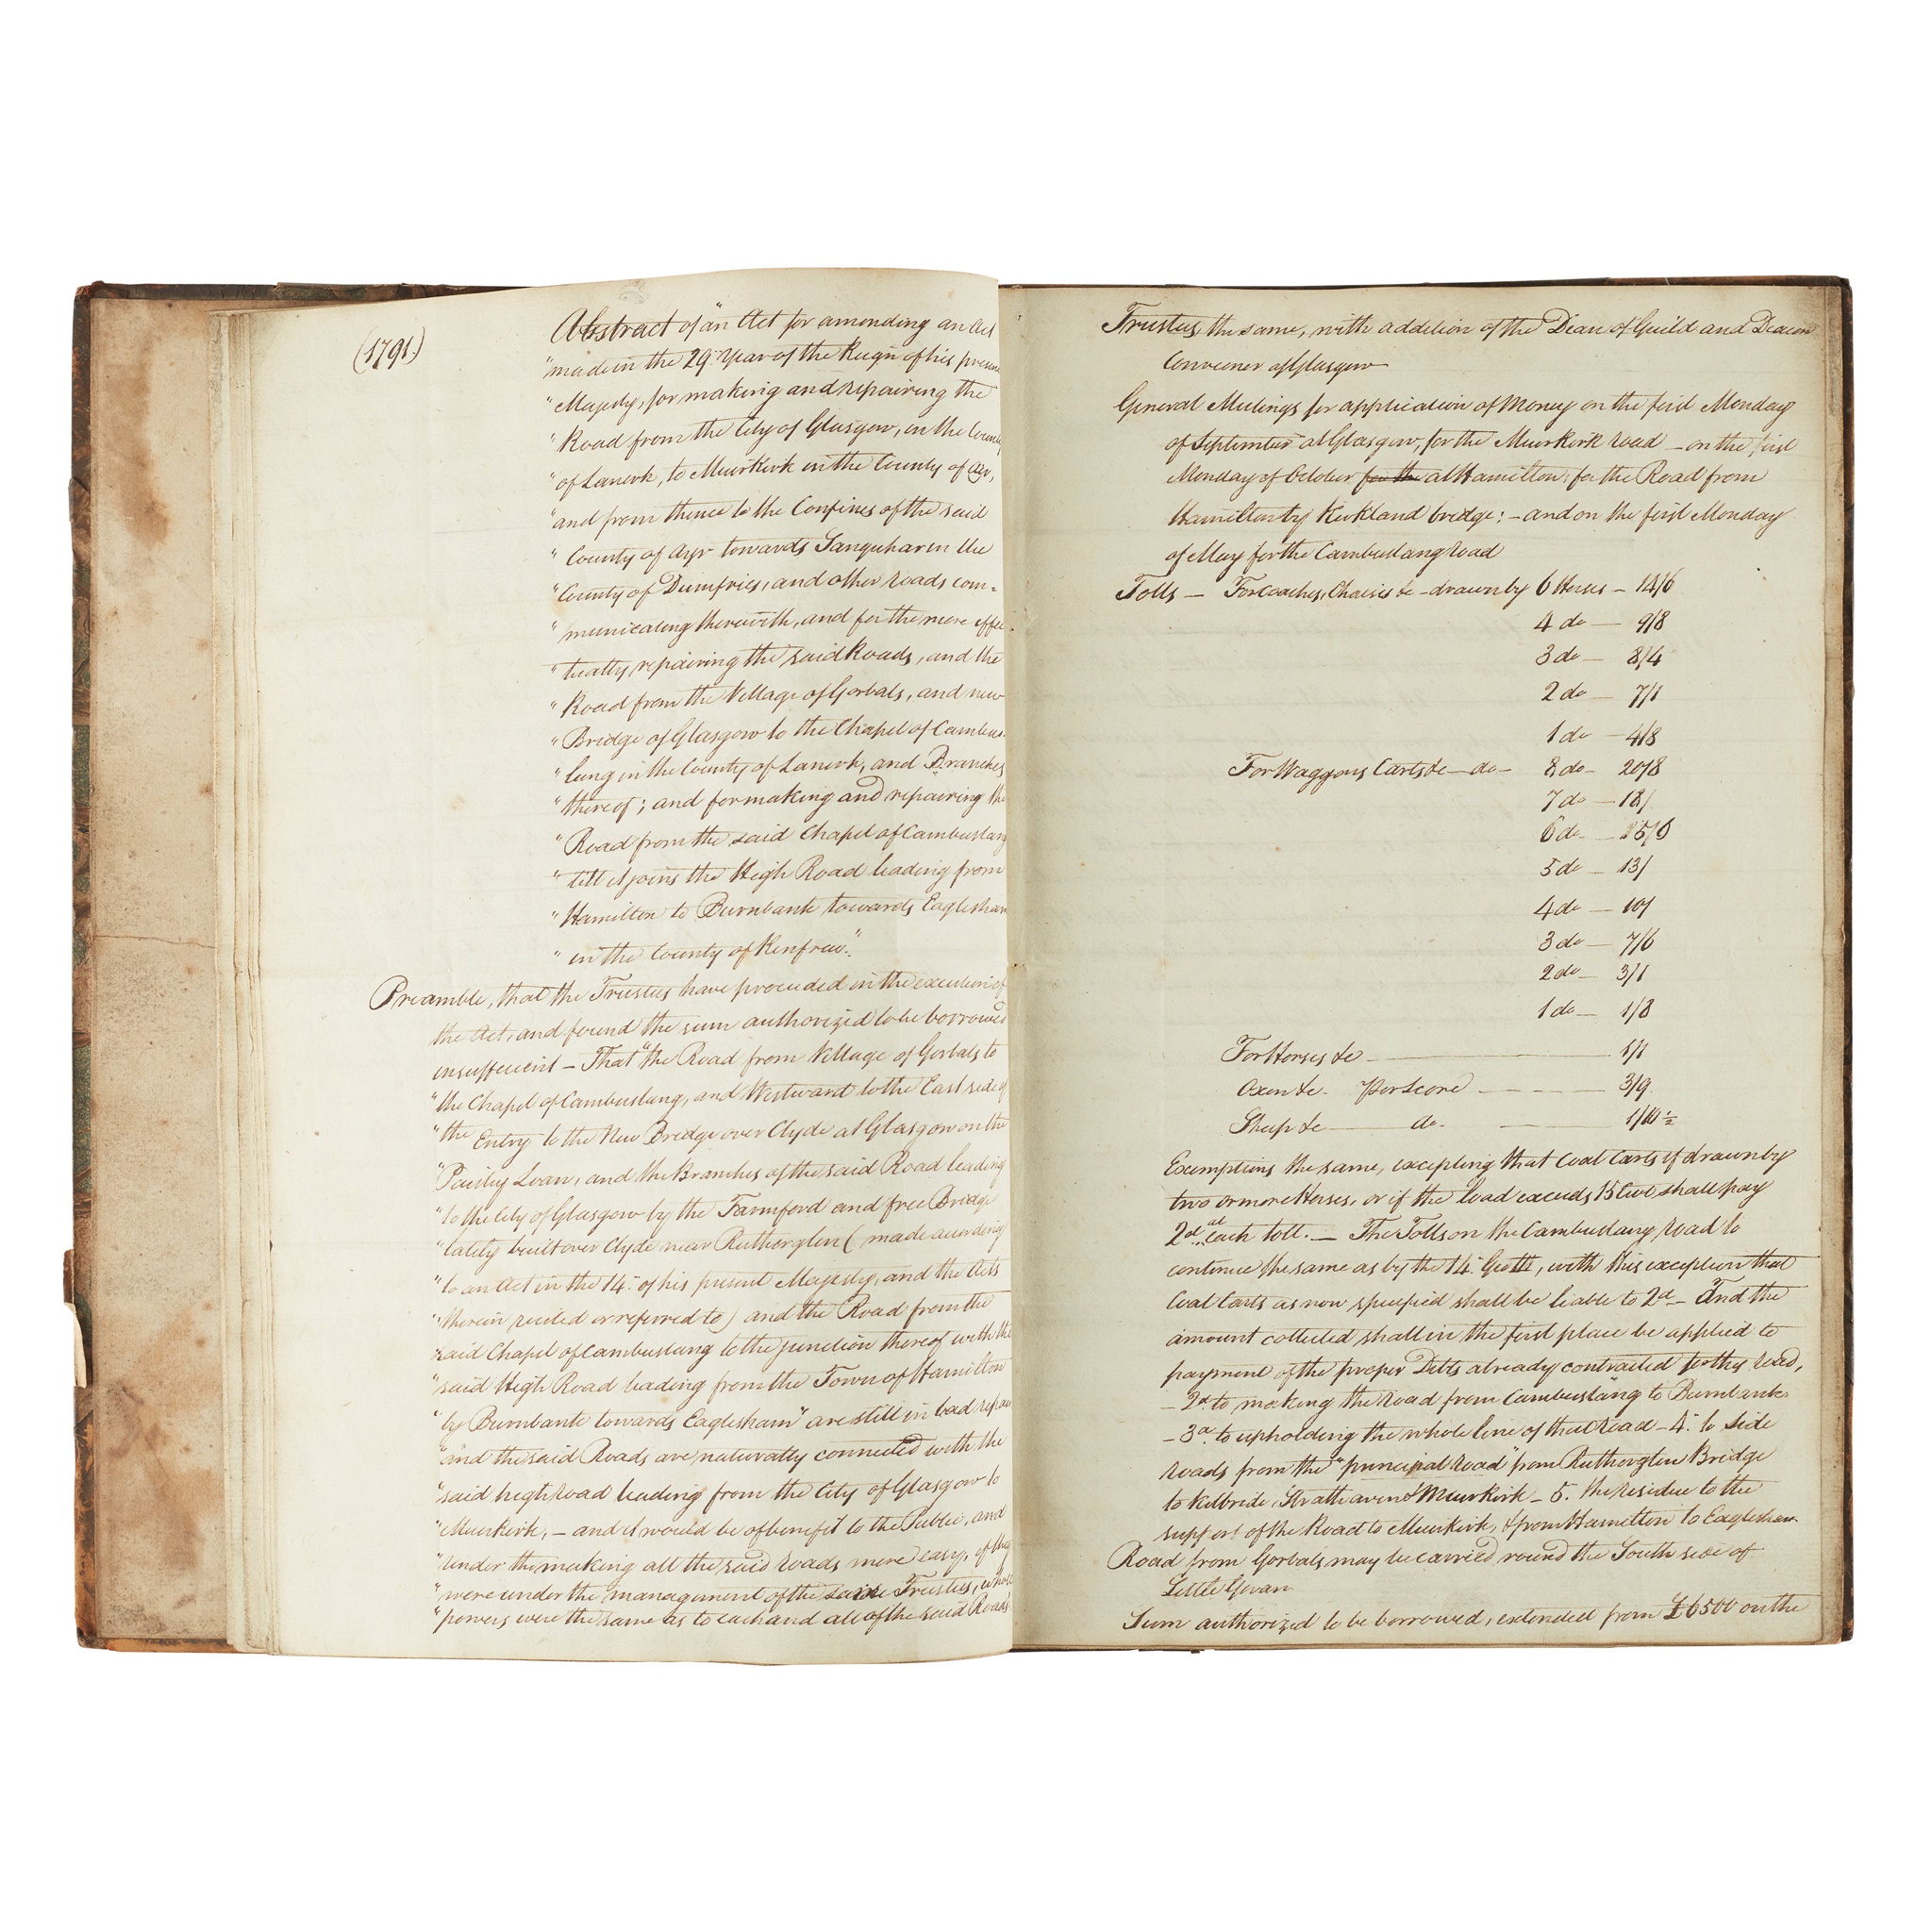 (1791.)
Abstract of "an Act for amending an Act
"made in the 29th Year of the Reign of his present
"Majesty, for making and repairing the
"Road from the City of Glasgow, in the County
"of Lanerk, to Muirkirk in the County of Ayr,
"and from thence to the Confines of the said
"County of Ayr towards Sanquhar in the
"County of Dumfries, and other roads com-
"municating therewith, and for the more effec
"tually repairing the said Roads, and the
"Road from the Village of Gorbals, and new
"Bridge of Glasgow to the Chapel of Cambus-
"lung in the County of Lanerk, and Branches
"thereof; and for making and repairing the
"Road from the said Chapel of Cambuslang
"till it joins the High Road leading from
"Hamilton to Burnbank towards Eaglesham
"in the County of Renfrew."
Preamble, that the Trustees have proceeded in the execution of
the Act, and found the sum authorized to be borrowed
insufficient – That "the Road from Village of Gorbals to
"the Chapel of Cambuslung, and Westward to the East side of
"the Entry to the New Bridge over Clyde at Glasgow on the
"Paisley Loan, and the Branches of the said Road leading
"to the City of Glasgow by the Farmford and free Bridge
"lately built over Clyde near Rutherglen (made according
"to an Act in the 14th of his present Majesty, and the Acts
"therein recited or referred to) and the Road from the
said Chapel of Cambuslang to the junction thereof with the
"said High Road leading from the Town of Hamilton
"by Burnbank towards Eaglesham" are still in bad repair
"and the said Roads are naturally connected with the
"said high road leading from the City of Glasgow to
"Muirkirk, – and it would be of benefit to the Public, and
"render the making all the said roads more easy, if they
"were under the management of the same Trustees, whose
"powers were the same as to each and all of the said Roads
Trustees the same, with addition of the Dean of Guild and Deacon
Conveener of Glasgow
General Meetings for application of Money on the first Monday
of September at Glasgow, for the Muirkirk road – on the first
Monday of October for the at Hamilton, for the Road from
Hamilton by Kirkland bridge: – and on the first Monday
of May for the Cambuslang road
Tolls – For Coaches, Chaises &c – drawn by 6 Horses – 14/6
4 do – 9/8
3 do – 8/4
2 do – 7/1
1 do – 4/8
For Waggons Carts &c – do – 8 do – 20/8
7 do – 18/
6 do – 15/6
5 do – 13/
4 do – 10/
3 do – 7/6
2 do – 3/1
1 do – 1/8
For Horses &c – 1/1
Oxen &c. Per Score – 3/9
Sheep &c – do. – 1/10½
Exemptions the same, excepting that Coal Carts if drawn by
two or more Horses, or if the load exceeds 15 Cwt shall pay
2d at each toll. – The Tolls on the Cambuslang road to
continue the same as by the 14. Geo III, with this exception that
Coal Carts as now specified shall be liable to 2d – And the
amount collected shall in the first place be applied to
payment of the proper Debts already contracted for this road,
– 2d to making the road from Cambuslang to Burnbank
– 3d to upholding the whole line of that road – 4. to side
roads from the "principal road" from Rutherglen Bridge
to Kilbride, Strathaven & Muirkirk – 5. the residue to the
support of the Road to Muirkirk, & from Hamilton to Eaglesham
Road from Gorbals may be carried round the South side of
Little Govan
Sum authorized to be borrowed, extended from £6500 on the